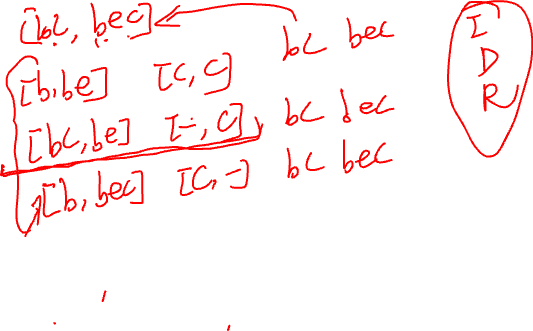 [bc, bec] bc bec
[b, be] [c, c]
[bc, be] [-, c] bc bec
[b, bec] [c, -] bc bec
I
D
R